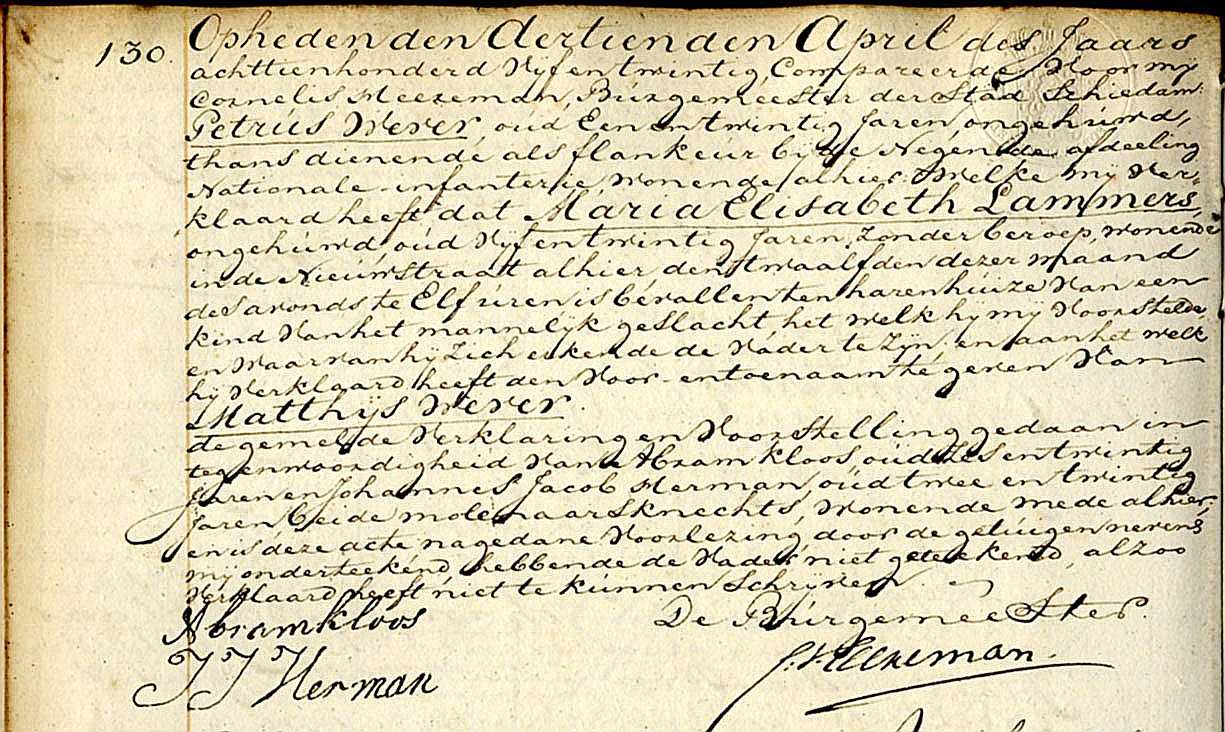 130.
Opheden den Dertienden April des Jaars
achttienhonderd Vyf en twintig, Compareerde Voor my
Cornelis Meezeman, Burgemeester der Stad Schiedam:
Petrus Wever, oud Een en twintig Jaren, ongehuwd,
thans dienende als flankeur by de Negende afdeeling
Nationale infanterie, Wonende alhier: Welke my Ver=
klaard heeft dat Maria Elisabeth Lammers,
ongehuwd, oud Vyf en twintig Jaren, Zonder beroep, wonende
in de Nieuwstraat alhier den twaalfden dezer maand
des avonds te Elf uren is bevallen ten harenhuize Van een
kind Van het mannelyk geslacht, het welk hy my Voorstelde
en Waarvan hy Zich erkende de Vader te Zyn, en aan het welk
hy Verklaard heeft den Voor- en toenaam te geven Van
Matthijs Wever.
de gemelde Verklaring en Voorstelling gedaan in
tegenwoordigheid Van Abram Kloos, oud Zes en twintig
Jaren en Johannes Jacob Herman, oud twee en twintig
Jaren beide molenaarsknechts, Wonende mede alhier,
en is deze acte na gedane Voorlezing door de getuigen nevens
my onderteekend hebbende de Vader niet geteekend, alzoo
Verklaard heeft niet te kunnen Schrijven
Abram kloos
De Burgemeester.
J J Herman